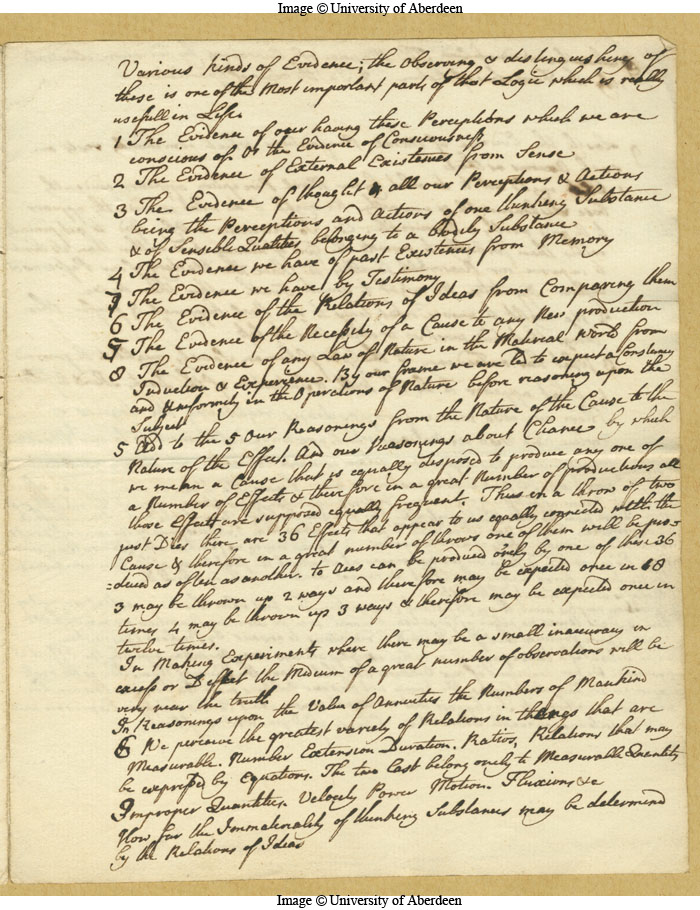 Image © University of Aberdeen
Various kinds of Evidence; the observing & distinguishing of
these is one of the most important parts of that Logic which is really
usefull in Life
1 The Evidence of our having these Perceptions which we are
conscious of. Or the Evidence of Consciousness
2 The Evidence of External Existences from Sense
3 The Evidence of thought & all our Perceptions & Actions
being the Perceptions and Actions of one thinking Substance
& of Sensible Qualities belonging to a bodily Substance
4 The Evidence we have of past Existences from Memory
The Evidence we have by Testimony
6 The Evidence of the Relations of Ideas from Comparing them
The Evidence of the Necessity of a Cause to any New production
8 The Evidence of any Law of Nature in the Material World from
Induction & Experience. By our frame we are led to expect a Constancy
and Uniformity in the Operations of Nature before reasoning upon the
Subject
5 Add to the 5 Our Reasonings from the Nature of the Cause to the
Nature of the Effect. And our Reasonings about Chance by which
we mean a Cause that is equally disposed to produce any one of
a Number of Effects & therefore in a great Number of productions all
those Effects are supposed equally frequent. Thus in a throw of two
just Dies there are 36 Effects that appear to us equally connected with the
Cause & therefore in a great number of throws one of them will be pro=
=duced as often as another. to Aces can be produced onely by one of these 36
3 may be thrown up 2 ways and therefore may be expected once in 18
times 4 may be thrown up 3 ways & therefore may be expected once in
twelve times.
In Making Experiments where there may be a small inaccuracy in
excess or Defect the Medium of a great number of observations will be
very near the truth
In Reasonings upon the Value of Annuities the Numbers of Mankind
6 We perceive the greatest variety of Relations in things that are
Measurable. Number Extension Duration. Ratios, Relations that may
be expressed by Equations. The two last belong onely to Measurable Quantity
Improper Quantities. Velocity Power Motion. Fluxions &c
How far the Immateriality of thinking Substances may be determind
by the Relations of Ideas
Image © University of Aberdeen